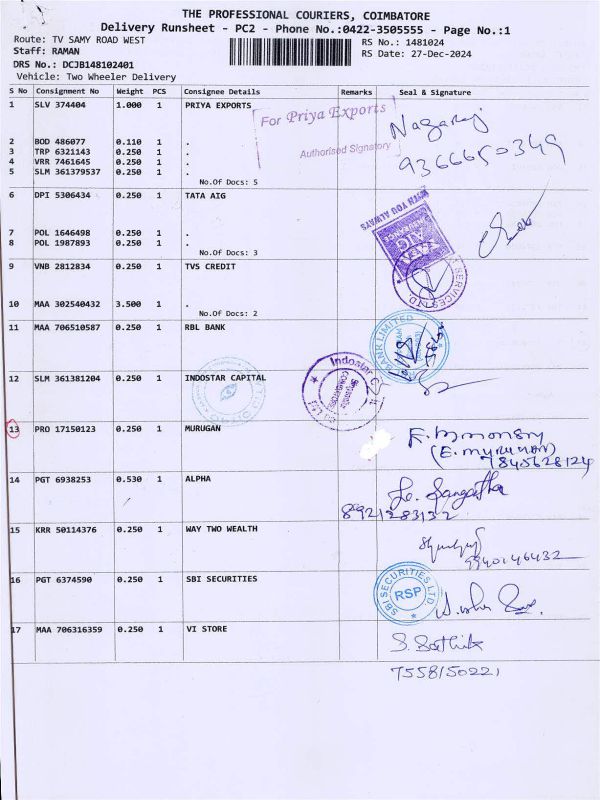 THE PROFESSIONAL COURIERS, COIMBATORE
Delivery Runsheet - PC2 - Phone No.:0422-3505555 - Page No.:1
Route: TV SAMY ROAD WEST
RS No.: 1481024
Staff: RAMAN
RS Date: 27-Dec-2024
DRS No.: DCJB148102401
Vehicle: Two Wheeler Delivery
S No Consignment No Weight PCS Consignee Details Remarks Seal & Signature
1 SLV 374404 1.000 1 PRIYA EXPORTS
For Priya Exports
Authorised Signatory
Nagaraj
9366650349
2 BOD 486077 0.110 1 .
3 TRP 6321143 0.250 1 .
4 VRR 7461645 0.250 1 .
5 SLM 361379537 0.250 1 .
No.Of Docs: 5
6 DPI 5306434 0.250 1 TATA AIG
WITH YOU ALWAYS
TATA
AIG
7 POL 1646498 0.250 1 .
8 POL 1987893 0.250 1 .
No.Of Docs: 3
9 VNB 2812834 0.250 1 TVS CREDIT
SERVICES LTD
10 MAA 302540432 3.500 1 .
No.Of Docs: 2
11 MAA 706510587 0.250 1 RBL BANK
BANK LIMITED
12 SLM 361381204 0.250 1 INDOSTAR CAPITAL
Indostar
13 PRO 17150123 0.250 1 MURUGAN
(E. MURUGAN)
7845628124
14 PGT 6938253 0.530 1 ALPHA
Sangeetha
8921283132
15 KRR 50114376 0.250 1 WAY TWO WEALTH
9940146432
16 PGT 6374590 0.250 1 SBI SECURITIES
SBI SECURITIES LTD
RSP
17 MAA 706316359 0.250 1 VI STORE
S. Sathik
7558150221